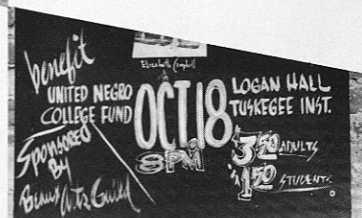 benefit
UNITED NEGRO
COLLEGE FUND
Sponsored
BY
Beaux Arts Guild
Elizabeth Campbell
OCT. 18
8PM
LOGAN HALL
TUSKEGEE INST.
$3.50 ADULTS
$1.50 STUDENTS